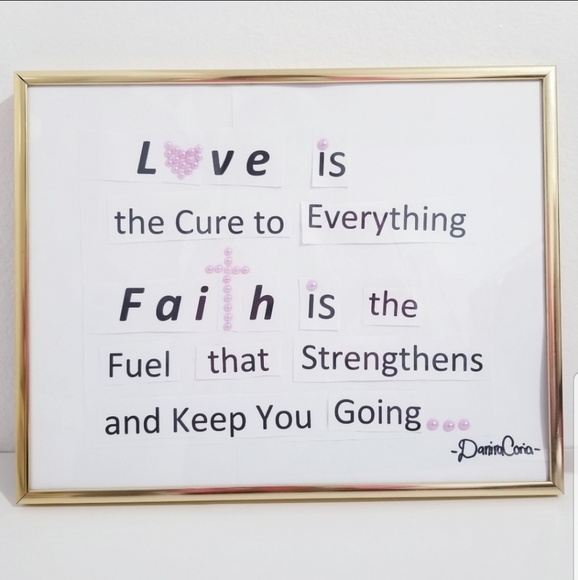 Love is
the Cure to Everything
Faith is the
Fuel that Strengthens
and Keep You Going...
-DaniraCoria-